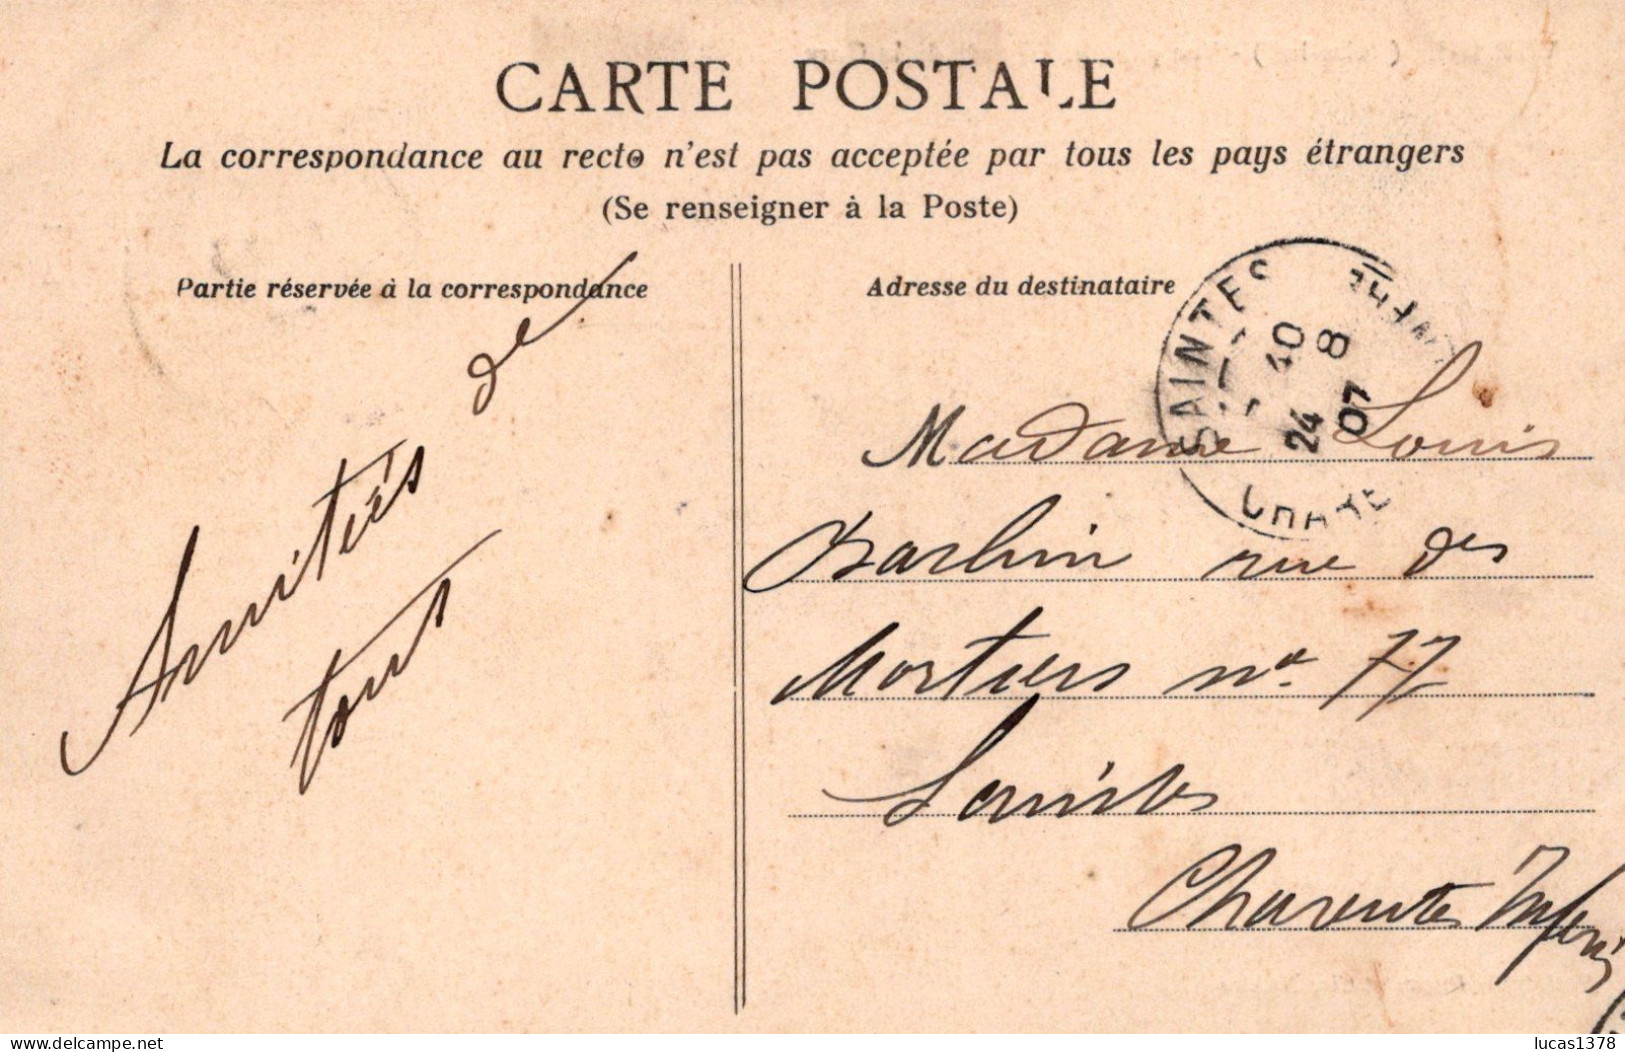 CARTE POSTALE
La correspondance au recto n'est pas acceptée par tous les pays étrangers
(Se renseigner à la Poste)
Partie réservée à la correspondance
Amitiés de
tous
Adresse du destinataire
SAINTES
10
24 8
07
Madame Louis
Barbin rue des
Mortiers no 77
Saintes
Charente Inferi
delcampe.net
lucas1378